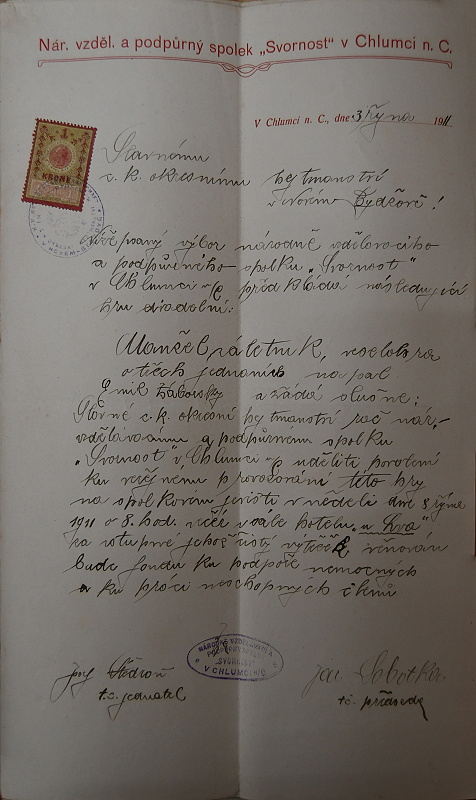 Nár. vzděl. a podpůrný spolek „Svornost“ v Chlumci n. C.
V Chlumci n. C., dne 3 října 1911
1
KRONE
Slavnému
c. k. okresnímu hejtmanství
v Novém Bydžově!
Níže psaný výbor národně vzdělavacího
a podpůrného spolku „Svornost“
v Chlumci n/C předkládá následující
hru divadelní:
Manžel záletník, veselohra
o třech jednáních napsal
Emil a žádá slušně:
Slavné c. k. okresní hejtmanství rač nár.
vzdělávacímu a podpůrnému spolku
„Svornost“ v Chlumci n/C uděliti povolení
ku veřejnému provozování této hry
na spolkovém jevišti v neděli dne 8 října
1911 o 8. hod. večer v sále hotelu „u Lva“
za vstupné jehož čistý výtěžek věnován
bude fondu ku podpoře nemocných
a ku práci neschopných členů
NÁRODNĚ VZDĚLAVACÍ A
PODPŮRNÝ SPOLEK
„SVORNOST“
V CHLUMCI N/C
Josef
t. č. jednatel
Jan Sobotka
t. č. předseda